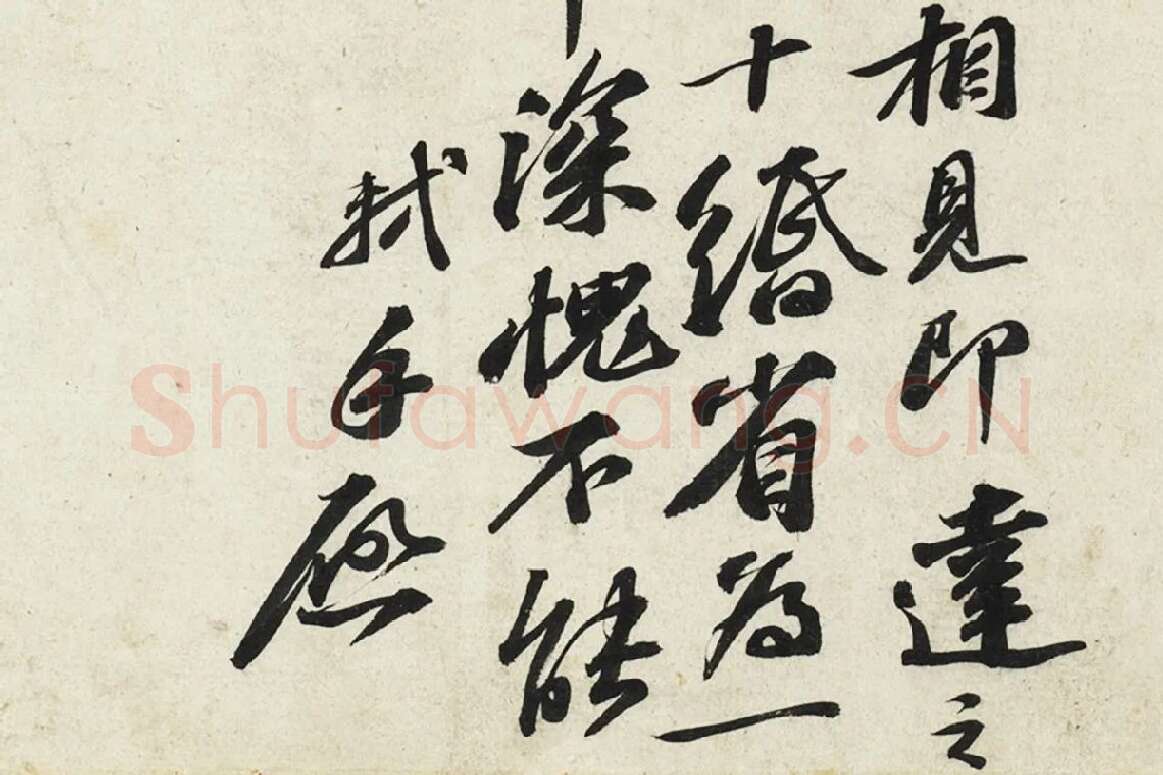 相見即達之
十緡省為一
深愧不能
軾手啟
Shufawang.CN